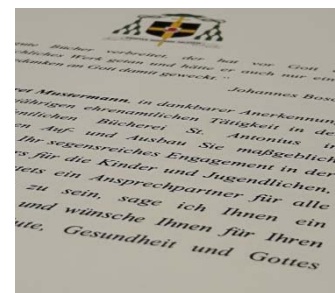 Bücher verbreitet, der hat vor Gott
Werk getan und hätte er auch nur ein
danken an Gott damit geweckt."
Johannes Bos
Mustermann, in dankbarer Anerkennung
jährigen ehrenamtlichen Tätigkeit in de
entlichen Bücherei St. Antonius in
en Auf- und Ausbau Sie maßgeblich
Ihr segensreiches Engagement in der
rs für die Kinder und Jugendlichen,
tets ein Ansprechpartner für alle
zu sein, sage ich Ihnen ein
und wünsche Ihnen für Ihren
ute, Gesundheit und Gottes